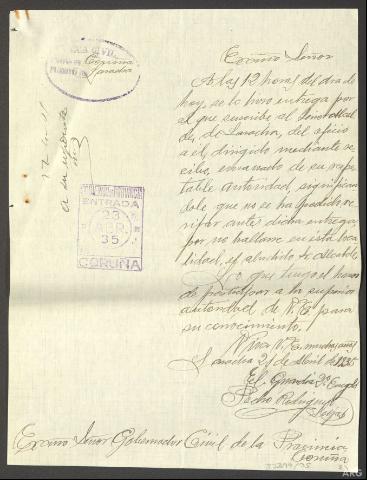 Excmo Señor
A las 12 horas del dia de
hoy, se le hizo entrega por
el que suscribe al Señor Alcal
de, de Laracha, del oficio
a el, dirigido mediante re
cibo, emanado de su respe
table Autoridad, significan
dole que no se ha podido ve
rificar antes dicha entrega,
por no hallarse en esta loca
lidad, el aludido Sr Alcalde.
Lo que tengo el honor
de participar a la superior
autoridad de V. E. para
su conocimiento.
Viva V. E. muchos años
Laracha 21 de Abril de 1935
El Guardia 2º
Pedro Rodriguez
Excmo Señor Gobernador Civil de la Provincia
Coruña
GUARDIA CIVIL
Coruña
Laracha
a su expediente
ENTRADA
23
ABR.
35
CORUÑA
ARG